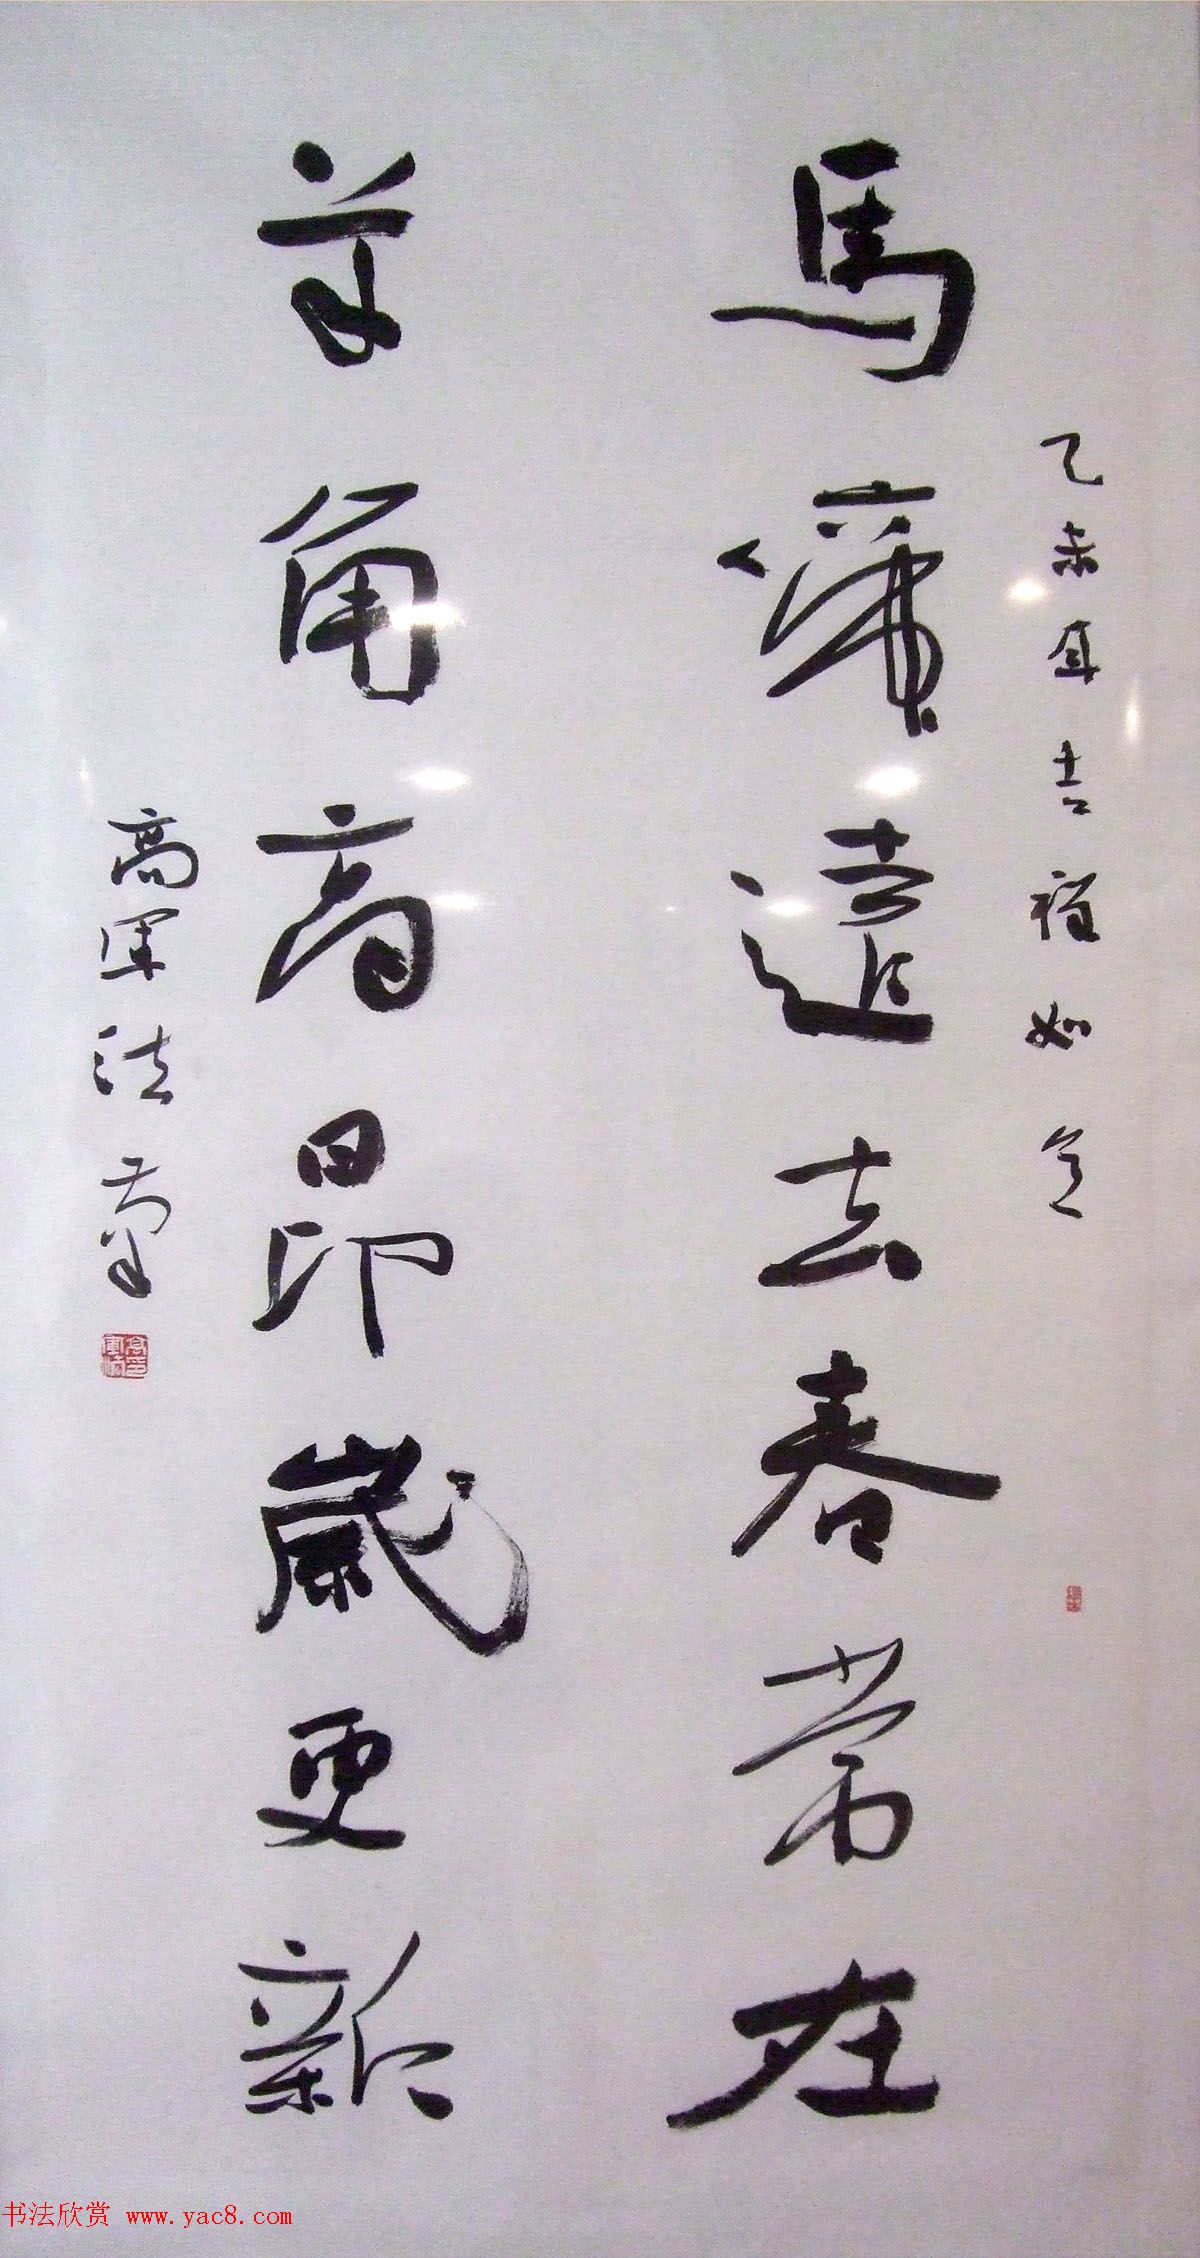 乙未年吉祥如意
馬蹄遠去春常在
羊角高昂歲更新
高軍法
书法欣赏 www.yac8.com